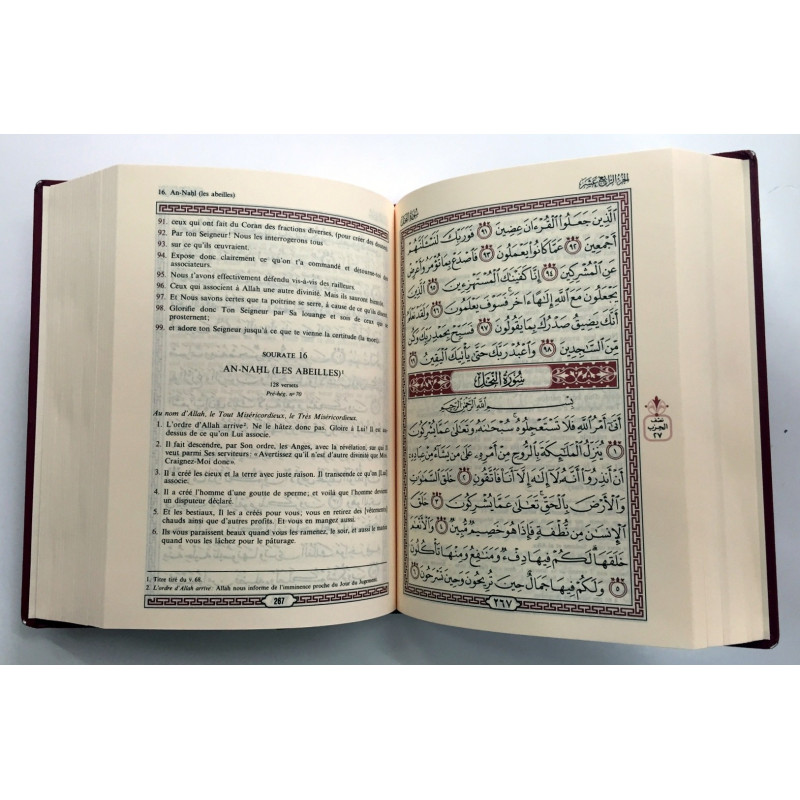 16. An-Naḥl (les abeilles)
91. ceux qui ont fait du Coran des fractions diverses, (pour créer des dissensions
92. Par ton Seigneur! Nous les interrogerons tous
93. sur ce qu'ils œuvraient.
94. Expose donc clairement ce qu'on t'a commandé et détourne-toi des
associateurs.
95. Nous t'avons effectivement défendu vis-à-vis des railleurs.
96. Ceux qui associent à Allah une autre divinité. Mais ils sauront bientôt.
97. Et Nous savons certes que ta poitrine se serre, à cause de ce qu'ils disent.
98. Glorifie donc Ton Seigneur par Sa louange et sois de ceux qui se
prosternent;
99. et adore ton Seigneur jusqu'à ce que te vienne la certitude (la mort).
SOURATE 16
AN-NAḤL (LES ABEILLES)¹
128 versets
Pré-hég. n° 70
Au nom d'Allah, le Tout Miséricordieux, le Très Miséricordieux.
1. L'ordre d'Allah arrive². Ne le hâtez donc pas. Gloire à Lui! Il est au-
dessus de ce qu'on Lui associe.
2. Il fait descendre, par Son ordre, les Anges, avec la révélation, sur qui Il
veut parmi Ses serviteurs: «Avertissez qu'il n'est d'autre divinité que Moi.
Craignez-Moi donc».
3. Il a créé les cieux et la terre avec juste raison. Il transcende ce qu'on [Lui]
associe.
4. Il a créé l'homme d'une goutte de sperme; et voilà que l'homme devient
un disputeur déclaré.
5. Et les bestiaux, Il les a créés pour vous; vous en retirez des [vêtements]
chauds ainsi que d'autres profits. Et vous en mangez aussi.
6. Ils vous paraissent beaux quand vous les ramenez, le soir, et aussi le matin
quand vous les lâchez pour le pâturage.
1. Titre tiré du v. 68.
2. L'ordre d'Allah arrive: Allah nous informe de l'imminence proche du Jour du Jugement.
267
الجزء الرابع عشر
الَّذِينَ جَعَلُوا الْقُرْءَانَ عِضِينَ ٩١ فَوَرَبِّكَ لَنَسْـَٔلَنَّهُمْ
أَجْمَعِينَ ٩٢ عَمَّا كَانُوا يَعْمَلُونَ ٩٣ فَاصْدَعْ بِمَا تُؤْمَرُ وَأَعْرِضْ
عَنِ الْمُشْرِكِينَ ٩٤ إِنَّا كَفَيْنَٰكَ الْمُسْتَهْزِءِينَ ٩٥ الَّذِينَ
يَجْعَلُونَ مَعَ اللَّهِ إِلَٰهًا ءَاخَرَ فَسَوْفَ يَعْلَمُونَ ٩٦ وَلَقَدْ نَعْلَمُ
أَنَّكَ يَضِيقُ صَدْرُكَ بِمَا يَقُولُونَ ٩٧ فَسَبِّحْ بِحَمْدِ رَبِّكَ وَكُن
مِّنَ السَّٰجِدِينَ ٩٨ وَاعْبُدْ رَبَّكَ حَتَّىٰ يَأْتِيَكَ الْيَقِينُ ٩٩
سُورَةُ النَّحْلِ
بِسْمِ اللَّهِ الرَّحْمَٰنِ الرَّحِيمِ
أَتَىٰ أَمْرُ اللَّهِ فَلَا تَسْتَعْجِلُوهُ سُبْحَٰنَهُ وَتَعَٰلَىٰ عَمَّا يُشْرِكُونَ
١ يُنَزِّلُ الْمَلَٰٓئِكَةَ بِالرُّوحِ مِنْ أَمْرِهِ عَلَىٰ مَن يَشَآءُ مِنْ عِبَادِهِ
أَنْ أَنذِرُوا أَنَّهُ لَآ إِلَٰهَ إِلَّآ أَنَا فَاتَّقُونِ ٢ خَلَقَ السَّمَٰوَٰتِ
وَالْأَرْضَ بِالْحَقِّ تَعَٰلَىٰ عَمَّا يُشْرِكُونَ ٣ خَلَقَ
الْإِنسَٰنَ مِن نُّطْفَةٍ فَإِذَا هُوَ خَصِيمٌ مُّبِينٌ ٤ وَالْأَنْعَٰمَ
خَلَقَهَا لَكُمْ فِيهَا دِفْءٌ وَمَنَٰفِعُ وَمِنْهَا تَأْكُلُونَ
٥ وَلَكُمْ فِيهَا جَمَالٌ حِينَ تُرِيحُونَ وَحِينَ تَسْرَحُونَ ٦
نصف
الحزب
٢٧
٢٦٧